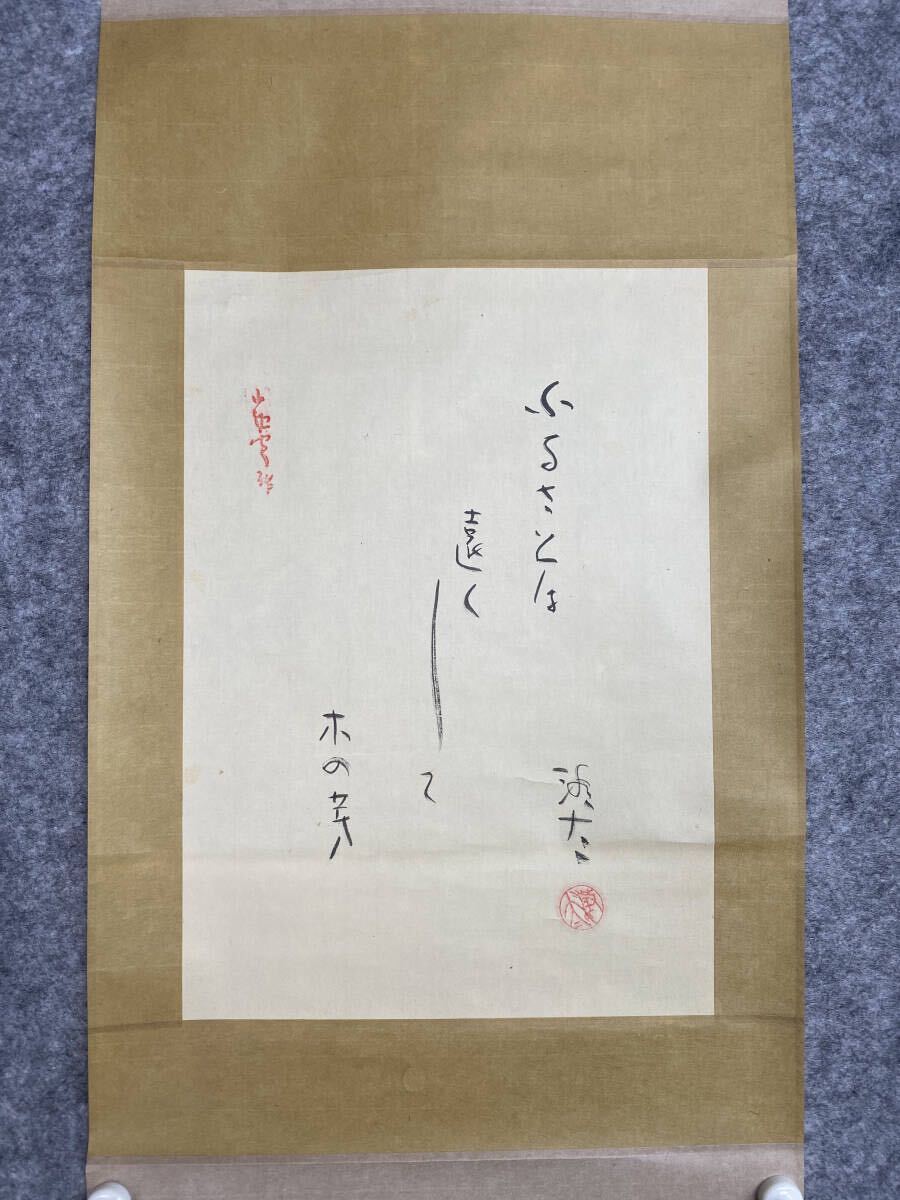 ふるさとは
遠くして
木の芽
澄太